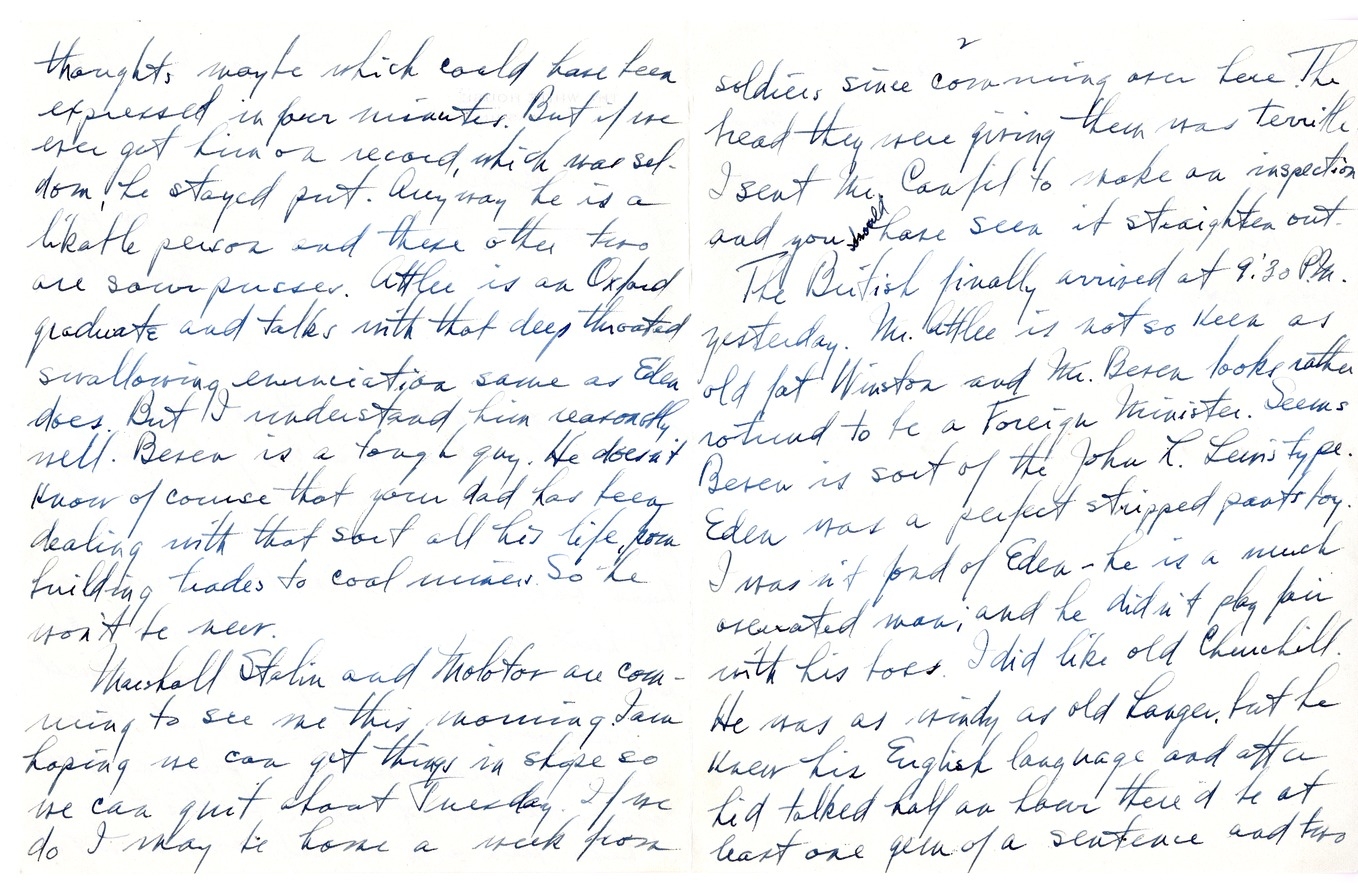 2
soldiers since comming over here. The
bread they were giving them was terrible.
I sent Mr. Canfil to make an inspection
and you should have seen it straighten out.
The British finally arrived at 9:30 P.M.
yesterday. Mr. Attlee is not so keen as
old fat Winston and Mr. Beven looks rather
rotund to be a Foreign Minister. Seems
Beven is sort of the John L. Lewis type.
Eden was a perfect stripped pants boy.
I was n't fond of Eden - he is a much
overrated man; and he didn't play fair
with his boss. I did like old Churchill.
He was as windy as old Langer, but he
knew his English language and after
he'd talked half an hour there'd be at
least one gem of a sentence and two
thoughts maybe which could have been
expressed in four minutes. But if we
ever got him on record, which was sel-
dom, he stayed put. Anyway he is a
likable person and these other two
are sourpusses. Attlee is an Oxford
graduate and talks with that deep throated
swallowing enunciation same as Eden
does. But I understand him reasonably
well. Beven is a tough guy. He doesn't
know of course that your dad has been
dealing with that sort all his life, from
building trades to coal miners. So he
won't be new.
Marshall Stalin and Molotov are com-
ming to see me this morning. I am
hoping we can get things in shape so
we can quit about Tuesday. If we
do I may be home a week from